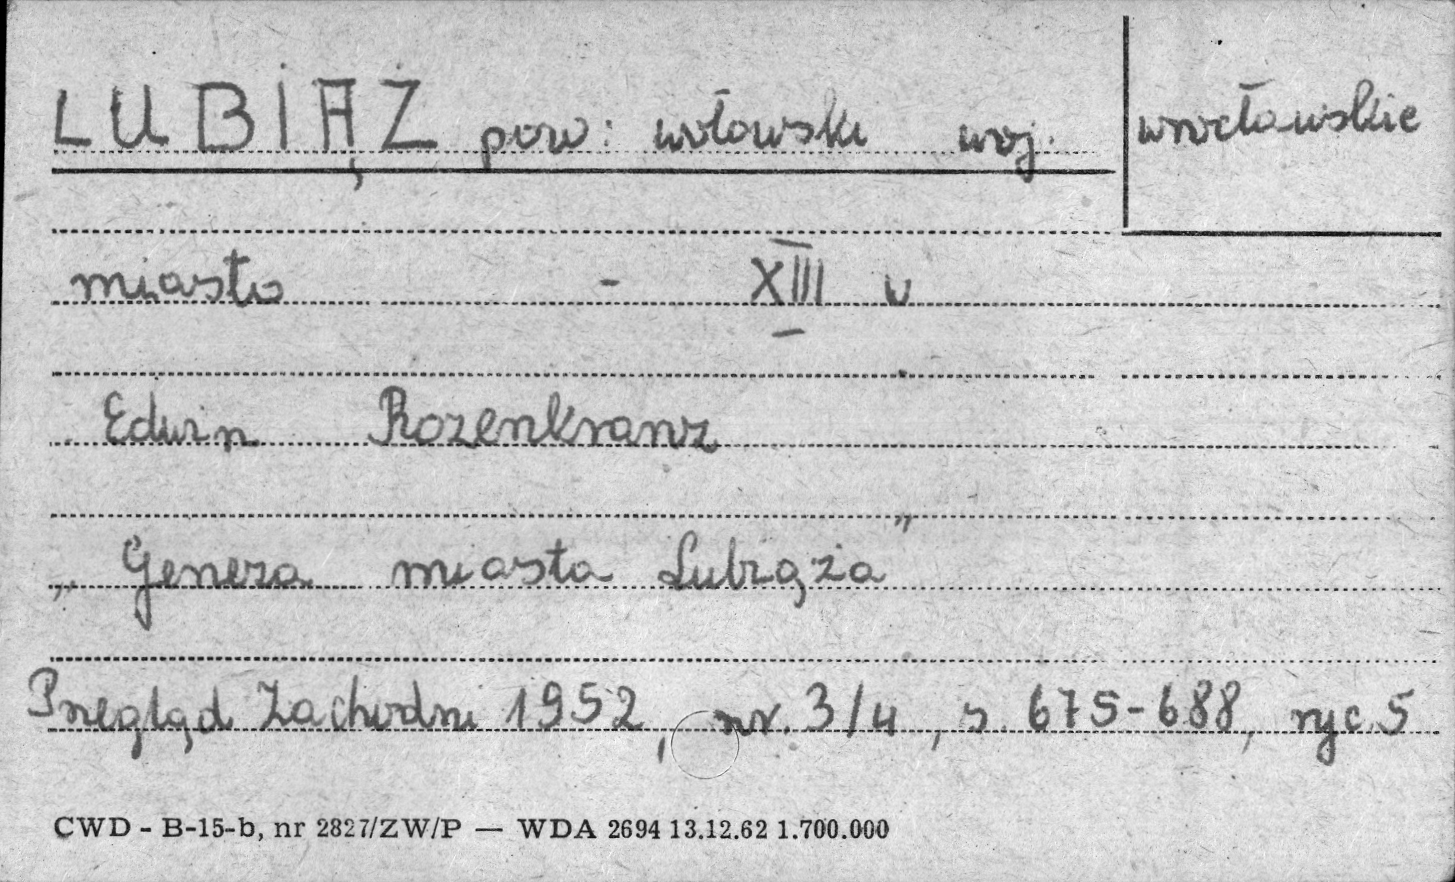 LUBIĄŻ pow: wołowski woj. wrocławskie
miasto - XIII w
Edwin Rozenkranz
„Geneza miasta Lubiąża”
Przegląd Zachodni 1952, nr. 3/4, s. 675-688, ryc. 5
CWD - B-15-b, nr 2827/ZW/P — WDA 2694 13.12.62 1.700.000